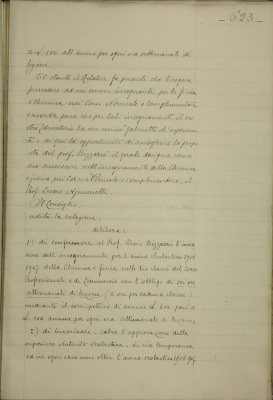 - 623 -
a £ 100 all'anno per ogni ora settimanale di
lezione.
Ciò stante il Relatore fa presente che bisogna
provvedere ad un nuovo insegnante per la fisica
e Chimica nei Corsi Normale e Complementare
e ricorda pure che per tali insegnamenti il no
stro Educatorio ha un unico gabinetto di esperimen
ti e di qui la opportunità di accogliere la propo
sta del prof. Bizzarri il quale designa come
suo successore nell'insegnamento della Chimica
e fisica nei Corsi Normale e complementare, il
Prof. Cesare
Il Consiglio,
udita la relazione,
delibera:
1) di confermare al Prof. Dino Bizzarri l'inca
rico dell'insegnamento per l'anno scolastico 1906
1907 della Chimica e fisica nelle tre classi del Corso
Professionale e di Commercio con l'obbligo di sei ore
settimanali di lezione (2 ore per caduna classe)
mediante il corrispettivo di annue £. 600 pari a
£. 100 annue per ogni ora settimanale di lezione;
2) di incaricare, salvo l'approvazione della
superiore Autorità Scolastica, in via temporanea
ed in ogni caso non oltre l'anno scolastico 1906-907